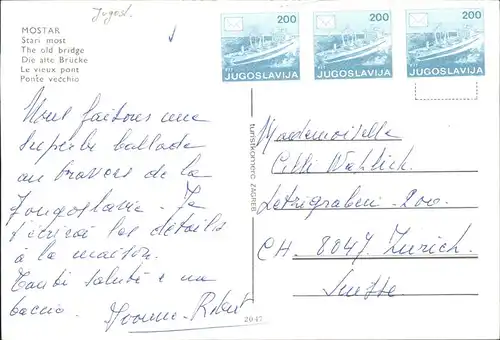 Jugosl.
MOSTAR
Stari most
The old bridge
Die alte Brücke
Le vieux pont
Ponte vecchio
200
JUGOSLAVIJA
200
JUGOSLAVIJA
200
JUGOSLAVIJA
Nous faisons une
superbe ballade
au travers de la
Yougoslavie. Je
t'écrirai les détails
à la maison.
Tanti saluti e un
bacio. Yvonne-Robert
turistkomerc ZAGREB
2047
Mademoiselle
Wahlich.
Letzigraben 200
CH. 8047 Zurich.
Suisse